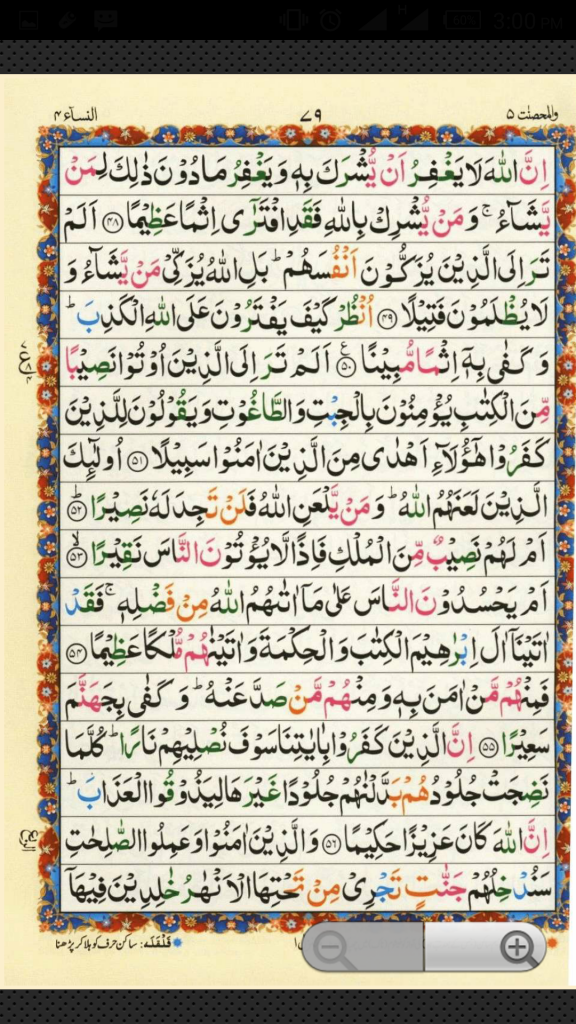 3:00 PM
60%
H
النسآء ۴
۷۹
والمحصنٰت ۵
اِنَّ اللّٰهَ لَا يَغْفِرُ اَنْ يُّشْرَكَ بِهٖ وَيَغْفِرُ مَا دُوْنَ ذٰلِكَ لِمَنْ
يَّشَآءُ ۚ وَمَنْ يُّشْرِكْ بِاللّٰهِ فَقَدِ افْتَرٰٓى اِثْمًا عَظِيْمًا ﴿۴۸﴾ اَلَمْ
تَرَ اِلَى الَّذِيْنَ يُزَكُّوْنَ اَنْفُسَهُمْ ؕ بَلِ اللّٰهُ يُزَكِّىْ مَنْ يَّشَآءُ وَ
لَا يُظْلَمُوْنَ فَتِيْلًا ﴿۴۹﴾ اُنْظُرْ كَيْفَ يَفْتَرُوْنَ عَلَى اللّٰهِ الْكَذِبَ ؕ
وَكَفٰى بِهٖۤ اِثْمًا مُّبِيْنًا ﴿۵۰﴾ اَلَمْ تَرَ اِلَى الَّذِيْنَ اُوْتُوْا نَصِيْبًا
مِّنَ الْكِتٰبِ يُؤْمِنُوْنَ بِالْجِبْتِ وَالطَّاغُوْتِ وَيَقُوْلُوْنَ لِلَّذِيْنَ
كَفَرُوْا هٰٓؤُلَآءِ اَهْدٰى مِنَ الَّذِيْنَ اٰمَنُوْا سَبِيْلًا ﴿۵۱﴾ اُولٰٓئِكَ
الَّذِيْنَ لَعَنَهُمُ اللّٰهُ ؕ وَمَنْ يَّلْعَنِ اللّٰهُ فَلَنْ تَجِدَ لَهٗ نَصِيْرًا ﴿۵۲﴾ؕ
اَمْ لَهُمْ نَصِيْبٌ مِّنَ الْمُلْكِ فَاِذًا لَّا يُؤْتُوْنَ النَّاسَ نَقِيْرًا ﴿۵۳﴾ۙ
اَمْ يَحْسُدُوْنَ النَّاسَ عَلٰى مَاۤ اٰتٰىهُمُ اللّٰهُ مِنْ فَضْلِهٖ ۚ فَقَدْ
اٰتَيْنَاۤ اٰلَ اِبْرٰهِيْمَ الْكِتٰبَ وَالْحِكْمَةَ وَاٰتَيْنٰهُمْ مُّلْكًا عَظِيْمًا ﴿۵۴﴾
فَمِنْهُمْ مَّنْ اٰمَنَ بِهٖ وَمِنْهُمْ مَّنْ صَدَّ عَنْهُ ؕ وَكَفٰى بِجَهَنَّمَ
سَعِيْرًا ﴿۵۵﴾ اِنَّ الَّذِيْنَ كَفَرُوْا بِاٰيٰتِنَا سَوْفَ نُصْلِيْهِمْ نَارًا ؕ كُلَّمَا
نَضِجَتْ جُلُوْدُهُمْ بَدَّلْنٰهُمْ جُلُوْدًا غَيْرَهَا لِيَذُوْقُوا الْعَذَابَ ؕ
اِنَّ اللّٰهَ كَانَ عَزِيْزًا حَكِيْمًا ﴿۵۶﴾ وَالَّذِيْنَ اٰمَنُوْا وَعَمِلُوا الصّٰلِحٰتِ
سَنُدْخِلُهُمْ جَنّٰتٍ تَجْرِىْ مِنْ تَحْتِهَا الْاَنْهٰرُ خٰلِدِيْنَ فِيْهَاۤ
قَلْقَلَهْ: ساکن حرف کو ہلا کر پڑھنا